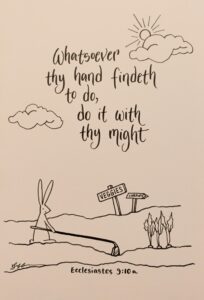 Whatsoever
thy hand findeth
to do,
do it with
thy might
VEGGIES
Ecclesiastes 9:10a